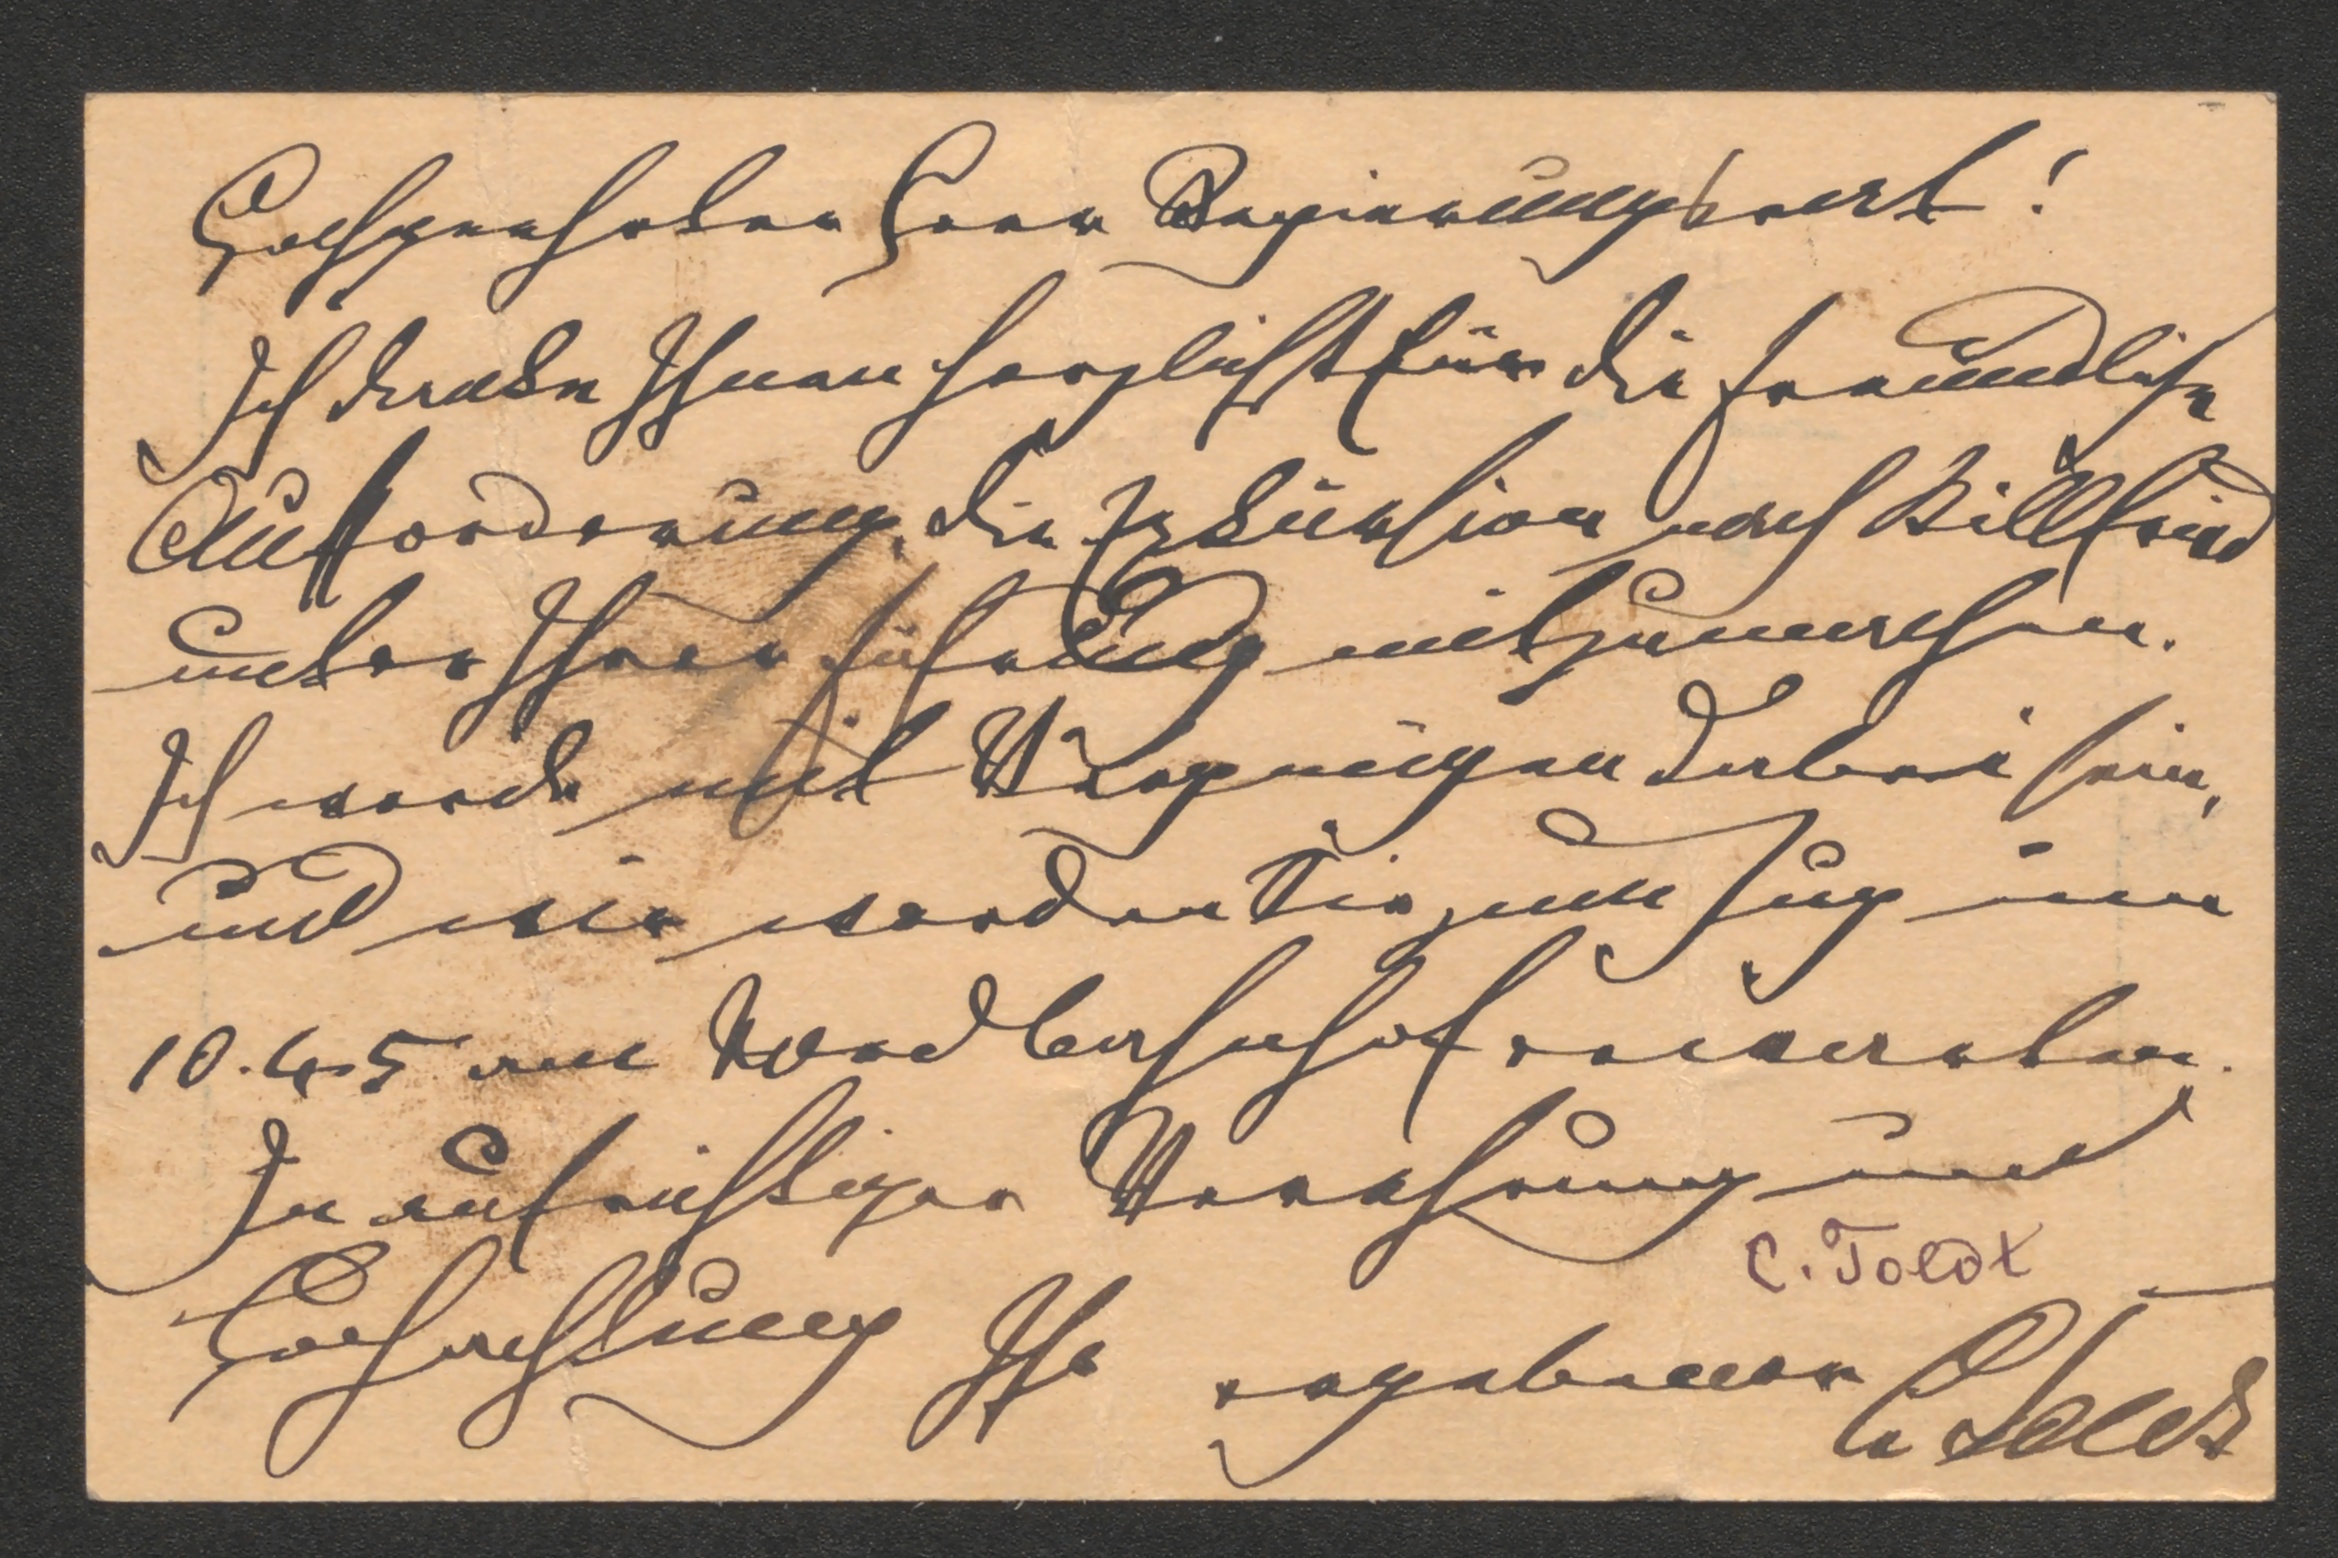 Hochgeehrter Herr Regierungsrat!
Ich danke Ihnen herzlichst für die freundliche
Aufforderung, die Exkursion nach
unter Ihrer Führung mitzumachen.
Ich werde mit Vergnügen dabei sein,
und wir werden Sie zum Zug um
10.45 am Nordbahnhof erwarten.
In aufrichtiger Verehrung und
C. Toldt
Hochachtung Ihr ergebener
C Toldt